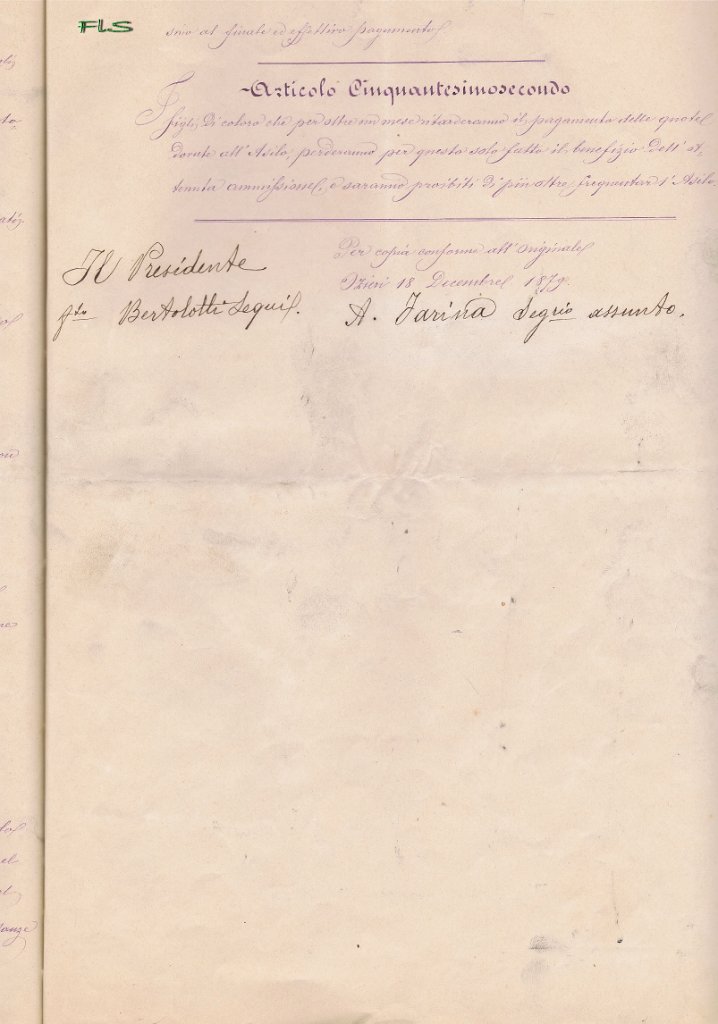 FLS
sino al finale ed effettivo pagamento
Articolo Cinquantesimosecondo
I figli di coloro che per oltre un mese ritarderanno il pagamento delle quote
dovute all'Asilo, perderanno per questo solo fatto il benefizio dell'ot,
tenuta ammissione, e saranno proibiti di più oltre frequentar l'Asilo.
Per copia conforme all'originale
Il Presidente
18 Decembre 1879.
fto Bertolotti
A. Farina Segrio assunto.